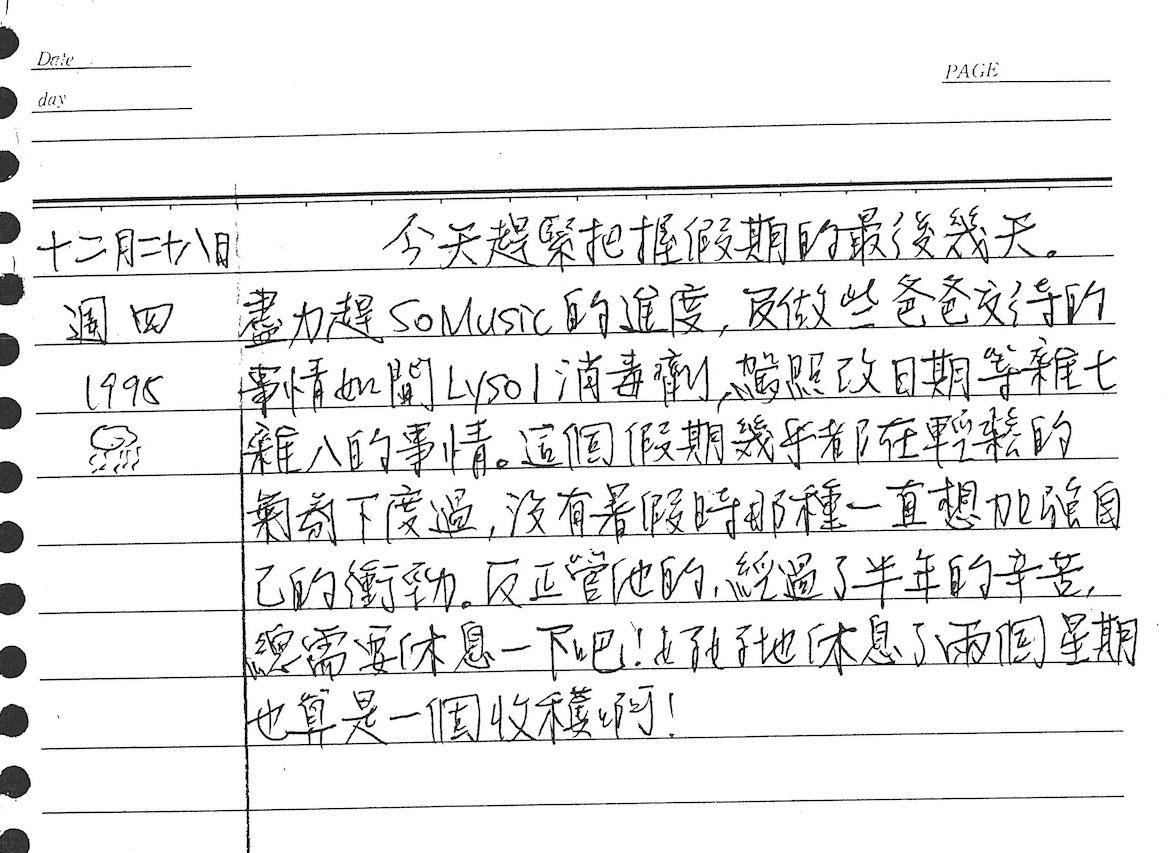 Date
day
PAGE
十二月二十八日
週四
1995
今天趕緊把握假期的最後幾天。
盡力趕SoMusic的進度,及做些爸爸交待的
事情如問Lysol消毒劑,駕照改日期等雜七
雜八的事情。這個假期幾乎都在輕鬆的
氣氛下度過,沒有暑假時那種一直想加強自
己的衝勁。反正管他的,經過了半年的辛苦,
總需要休息一下吧!好好地休息了兩個星期
也算是一個收穫啊!